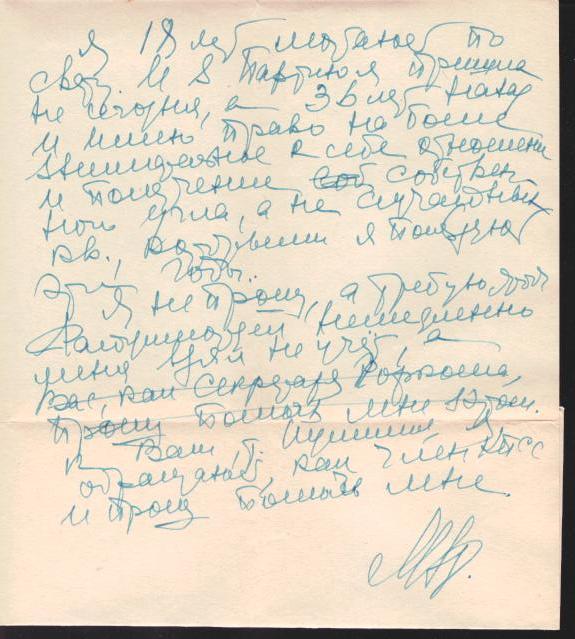 Я 18 лет работаю по
свету. И в Партию я пришла
не сегодня, а 38 лет назад
и имею право на более
внимательное к себе отношение
и получение соб собствен
ного угла, а не случайных
кв., которыми я пользуюсь
эти годы.
Я не прошу, а требую, чтобы
немедленно
меня взяли на учёт, а
Вас, как секретаря Горкома,
прошу помочь мне в этом.
К Вам, т.
обращаюсь, как член КПСС
и прошу помочь мне.